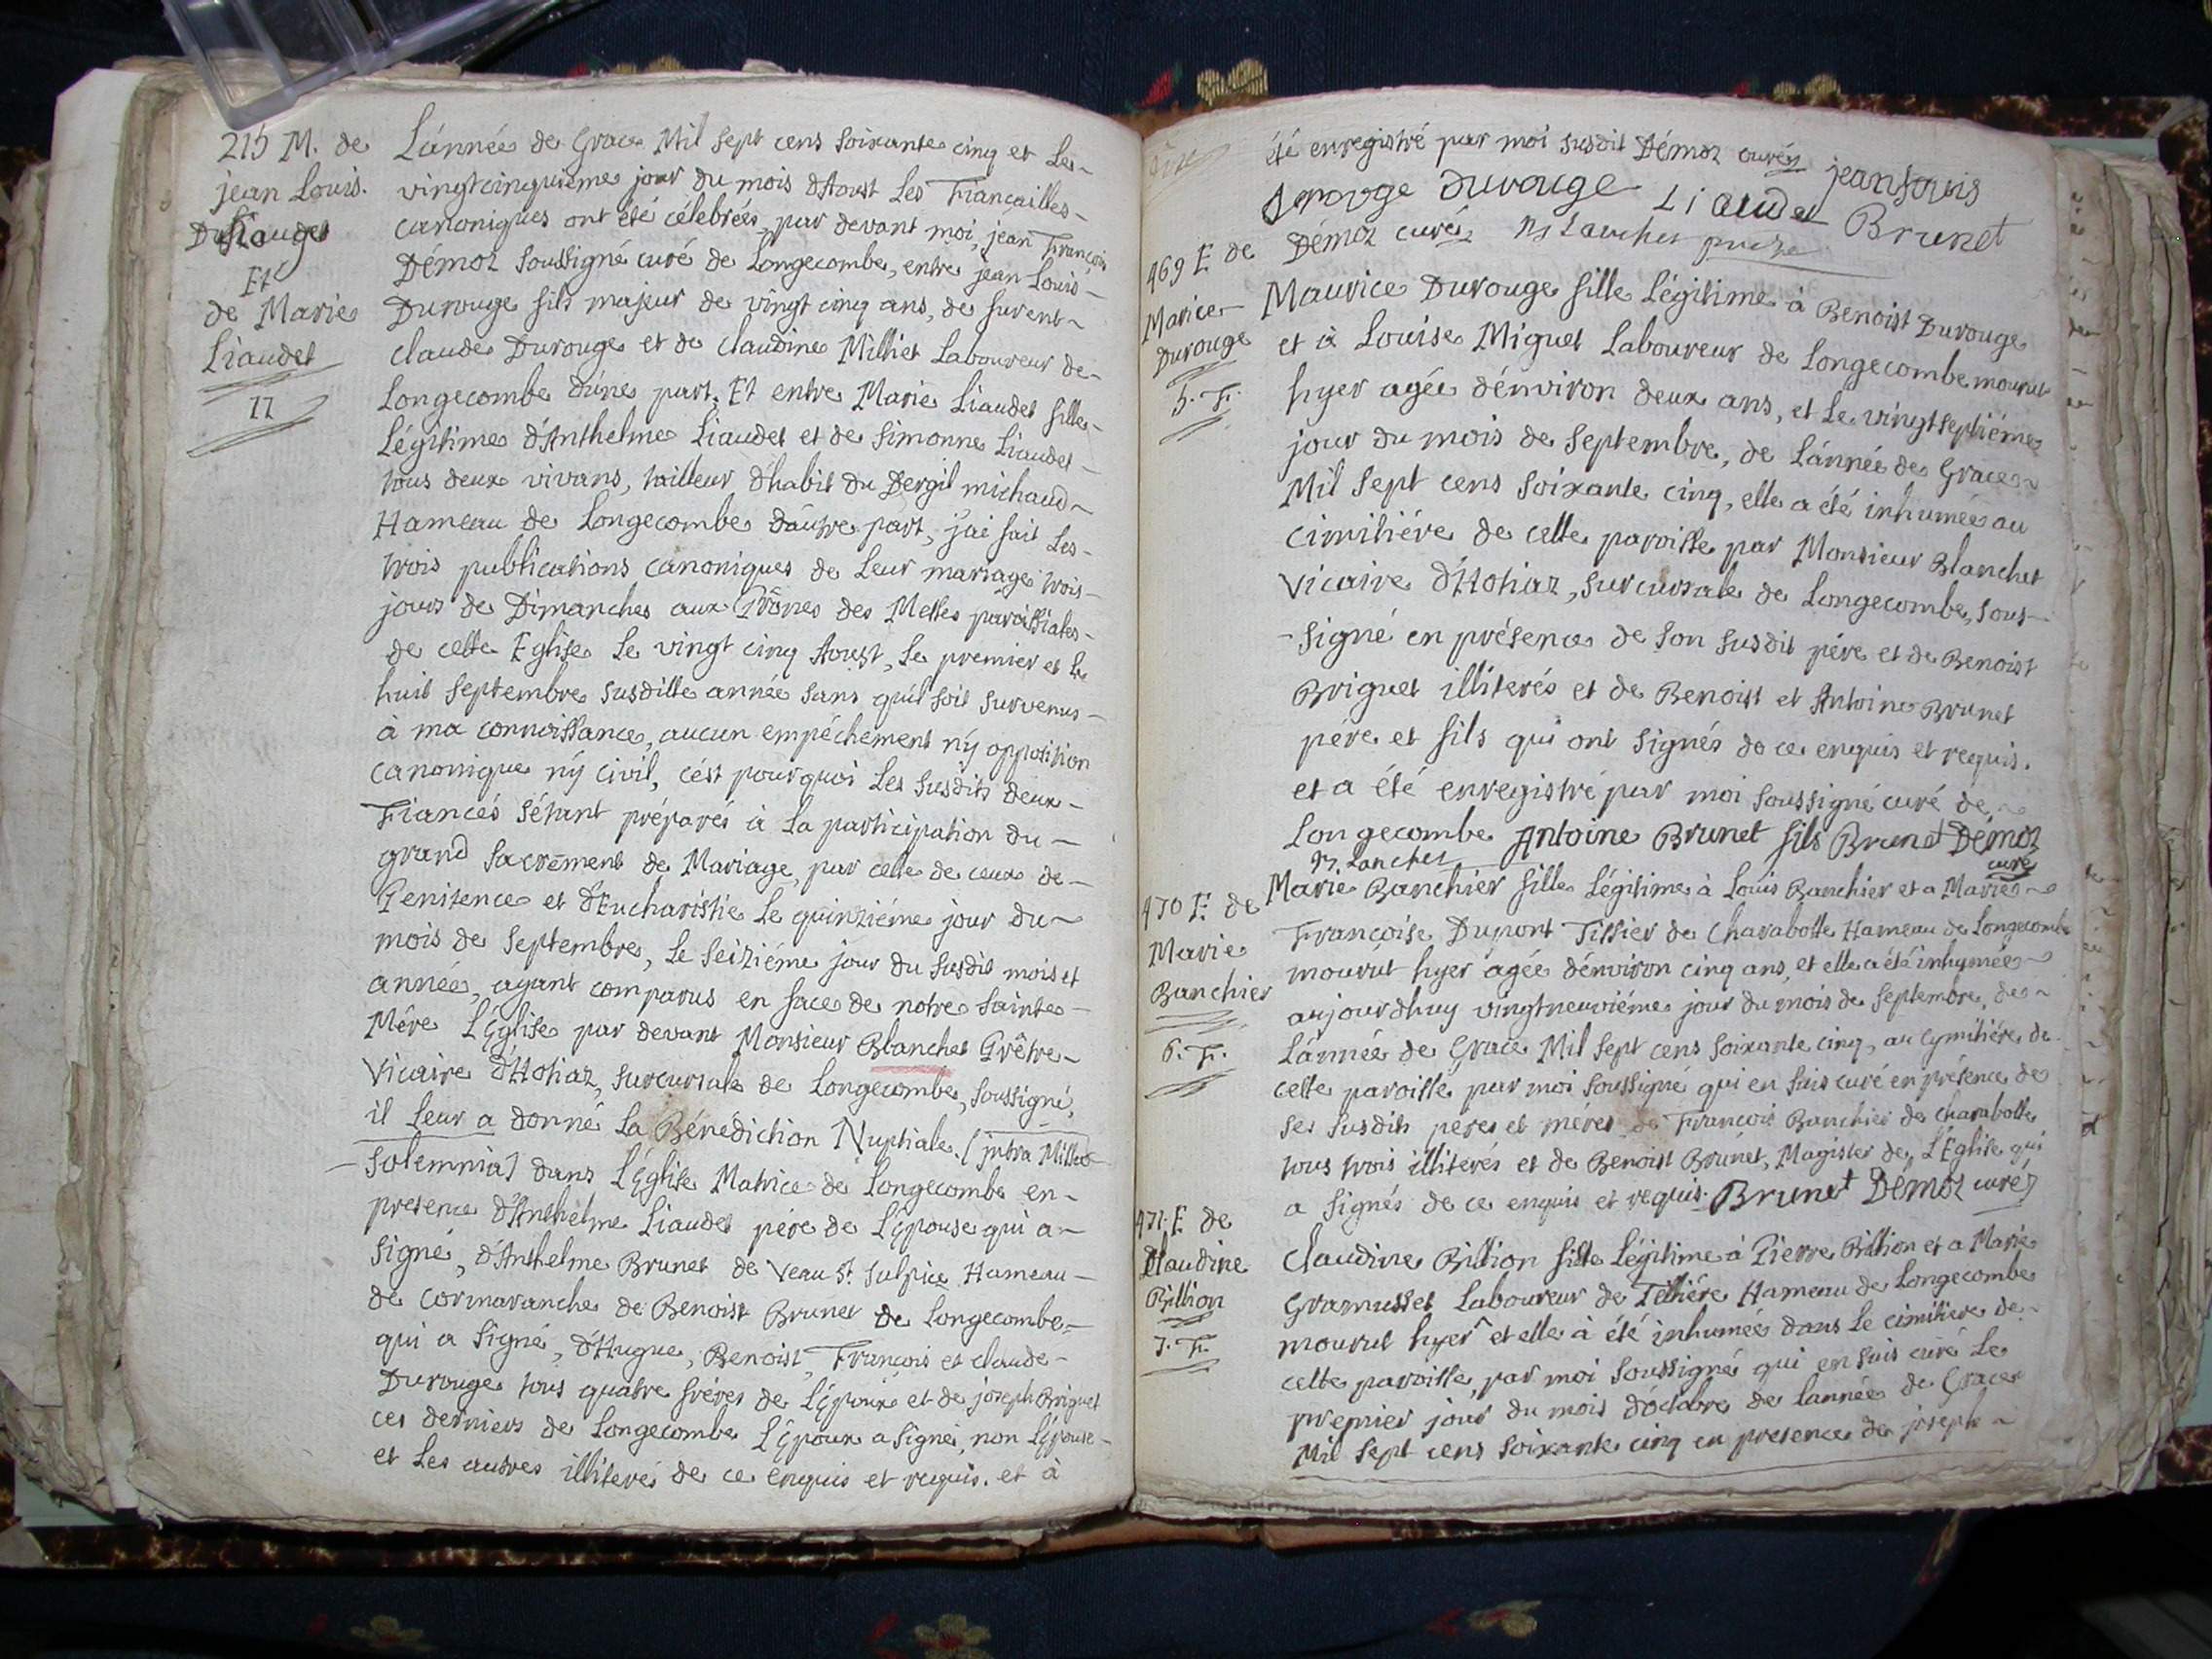 215 M. de
jean Louis.
Durouge
Et
de Marie
Liaudet
11
L'année de Grace Mil Sept cens Soixante cinq et Le-
vingtcinquieme jour du mois d'Aoust Les Fiançailles-
canoniques ont été célebrées, par devant moi, jean François
Démoz Soussigné curé de Longecombe, entre jean Louis-
Durouge fils majeur de vingt cinq ans, de furent~
claude Durouge et de claudine Milliet Laboureur de-
Longecombe d'une part. Et entre Marie Liaudet fille-
Légitime d'Anthelme Liaudet et de Simonne Liaudet-
tous deux vivans, tailleur d'habit du Dergil michaud~
Hameau de Longecombe d'autre part, j'ai fait Les-
trois publications canoniques de Leur mariage trois-
jours de Dimanches aux Prônes des Messes paroissiales-
de cette Eglise Le vingt cinq Aoust, Le premier et Le
huit Septembre susditte année sans qu'il soit survenus-
à ma connoissance, aucun empéchement n'y opposition
canonique n'y civil, c'ést pourquoi Les susdits deux-
Fiancés s'étant préparés à La participation du-
grand Sacrement de Mariage, par celle de ceux de-
Penitence et d'Eucharistie Le quinziéme jour du~
mois de Septembre, Le Seiziéme jour du susdit mois et
année, ayant comparus en face de notre Sainte-
Mére L'Eglise par devant Monsieur Blanchet Prêtre-
Vicaire d'Hotiaz, surcursale de Longecombe, Soussigné,
il Leur a donné La Bénédiction Nuptiale. (jntra Missæ
-Solemnia) dans L'Eglise Matrice de Longecombe en-
presence d'Anthelme Liaudet pére de L'Epouse qui a-
signé, d'Anthelme Brunet de Veau St. Sulpice Hameau-
de cormaranche de Benoist Brunet de Longecombe-
qui a signé, d'Hugue, Benoist, François et claude-
Durouge tous quatre fréres de L'Epoux et de joseph Briguet
ces derniers de Longecombe L'Epoux a signé, non L'Epouse-
et Les autres illiterés de ce enquis et requis. et à
été enregistré par moi susdit Démoz curé jean Louis
Durouge Liaudet
Démoz curé Brunet
469 E de
Marice
Durouge
5. F.
Maurice Durouge fille Légitime à Benoist Durouge
et à Louise Miguet Laboureur de Longecombe mourut
hyer agée d'environ deux ans, et Le vingtseptiéme
jour du mois de Septembre, de L'année de Grace~
Mil Sept cens Soixante cinq, elle a été inhumée au
cimitiére de cette paroisse par Monsieur Blanchet
Vicaire d'Hotiaz, Surcursale de Longecombe, Sous-
-signé en présence de son susdit pére et de Benoist
Briguet illiterés et de Benoist et Antoine Brunet
pére et fils qui ont signés de ce enquis et requis.
et a été enregistré par moi soussigné curé de~
Longecombe Antoine Brunet fils Brunet Démoz
curé
470 E de
Marie
Banchier
6. F.
Marie Banchier fille Légitime à Louis Banchier et a Marie~
Françoise Dupont Tissier de Charabotte Hameau de Longecombe
mourut hyer agée d'environ cinq ans, et elle a été inhumée~
aujourdhuy vingtneuviéme jour du mois de Septembre, de~
L'année de Grace Mil Sept cens Soixante cinq, au cymitiére de
cette paroisse par moi soussigné qui en suis curé en présence de
ses susdits péres et méres de François Banchier de charabotte
tous trois illiterés et de Benoist Brunet, Magister de L'Eglise qui
a signés de ce enquis et requis. Brunet Démoz curé
471. E de
Claudine
Billion
7. F.
Claudine Billion fille Légitime à Pierre Billion et a Marie
Gramusset Laboureur de Telliére Hameau de Longecombe
mourut hyer et elle à été inhumée dans Le cimitiere de-
cette paroisse, par moi Soussigné qui en suis curé Le
premier jour du mois d'octobre de l'année de Grace
Mil Sept cens Soixante cinq en presence de joseph~